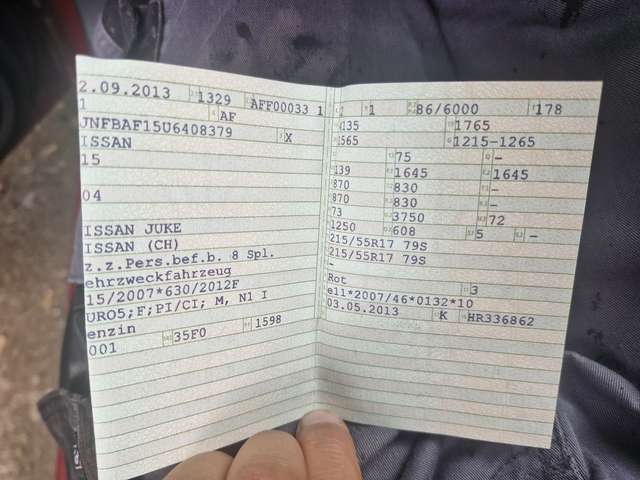 2.09.2013 1329 AFF00033 1
1 AF
JNFBAF15U6408379 X
ISSAN
15
04
ISSAN JUKE
ISSAN (CH)
z.z.Pers.bef.b. 8 Spl.
ehrzweckfahrzeug
15/2007*630/2012F
URO5;F;PI/CI; M, N1 I
enzin
001 35F0 1598
1 86/6000 178
135 1765
565 1215-1265
75 -
139 1645 1645
870 830 -
870 830 -
73 3750 72
1250 608 5 -
215/55R17 79S
215/55R17 79S
-
Rot 3
e11*2007/46*0132*10
03.05.2013 K HR336862